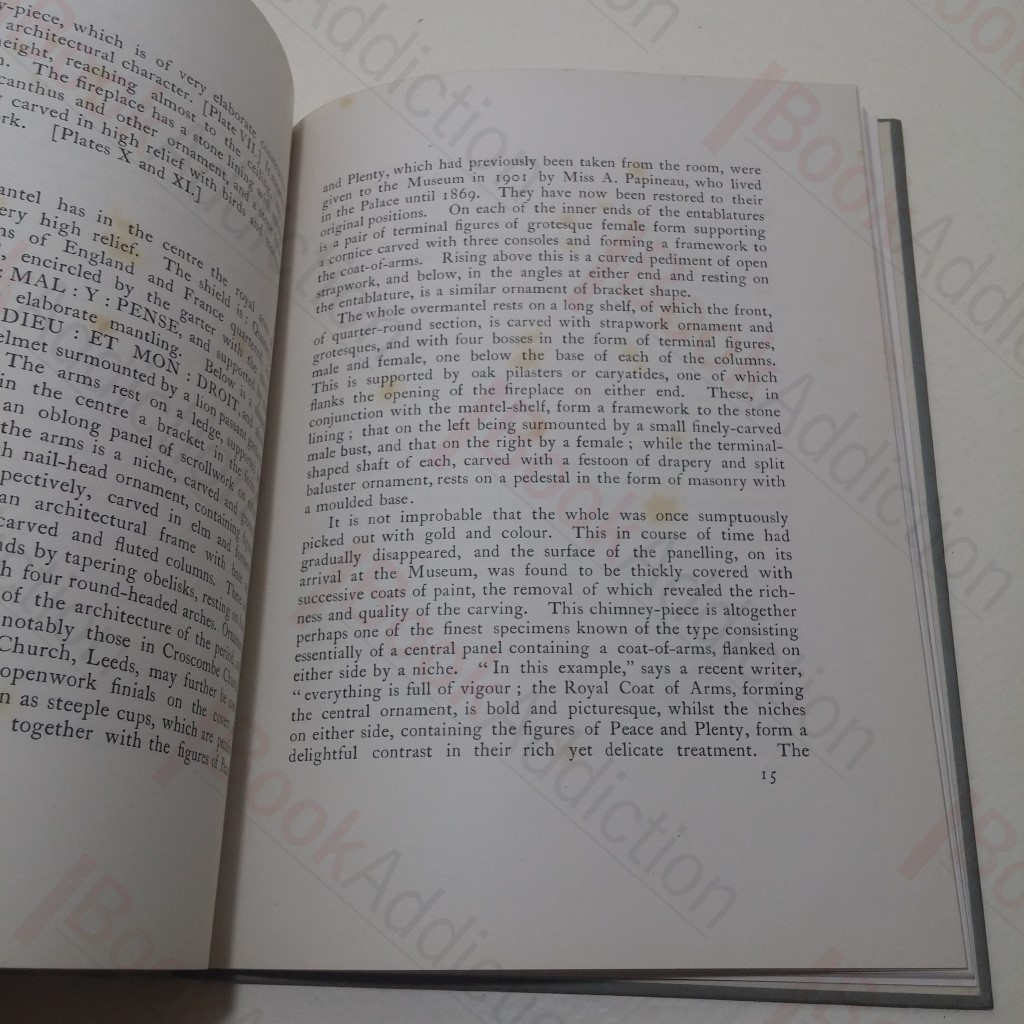 y-piece, which is of very elaborate
architectural character. [Plate VII.] It is
height, reaching almost to the ceiling
The fireplace has a stone lining
canthus and other ornament, and a
carved in high relief with birds and
rk. [Plates X and XI.]
mantel has in the centre the royal
ery high relief. The shield is: Quarterly
ns of England and France
encircled by the garter with the
: MAL : Y : PENSE, and supported by
elaborate mantling. Below is a
DIEU : ET MON : DROIT, and
elmet surmounted by a lion passant
The arms rest on a ledge, supported
in the centre a bracket in the form
an oblong panel of scrollwork on
the arms is a niche, carved and
h nail-head ornament, containing
pectively, carved in elm and
an architectural frame with
carved and fluted columns. These
nds by tapering obelisks, resting on
h four round-headed arches.
of the architecture of the period,
notably those in Croscombe Church
Church, Leeds, may further be
openwork finials on the cover
n as steeple cups, which are
together with the figures of
and Plenty, which had previously been taken from the room, were
given to the Museum in 1901 by Miss A. Papineau, who lived
in the Palace until 1869. They have now been restored to their
original positions. On each of the inner ends of the entablatures
is a pair of terminal figures of grotesque female form supporting
a cornice carved with three consoles and forming a framework to
the coat-of-arms. Rising above this is a curved pediment of open
strapwork, and below, in the angles at either end and resting on
the entablature, is a similar ornament of bracket shape.
The whole overmantel rests on a long shelf, of which the front,
of quarter-round section, is carved with strapwork ornament and
grotesques, and with four bosses in the form of terminal figures,
male and female, one below the base of each of the columns.
This is supported by oak pilasters or caryatides, one of which
flanks the opening of the fireplace on either end. These, in
conjunction with the mantel-shelf, form a framework to the stone
lining ; that on the left being surmounted by a small finely-carved
male bust, and that on the right by a female ; while the terminal-
shaped shaft of each, carved with a festoon of drapery and split
baluster ornament, rests on a pedestal in the form of masonry with
a moulded base.
It is not improbable that the whole was once sumptuously
picked out with gold and colour. This in course of time had
gradually disappeared, and the surface of the panelling, on its
arrival at the Museum, was found to be thickly covered with
successive coats of paint, the removal of which revealed the rich-
ness and quality of the carving. This chimney-piece is altogether
perhaps one of the finest specimens known of the type consisting
essentially of a central panel containing a coat-of-arms, flanked on
either side by a niche. “ In this example,” says a recent writer,
“ everything is full of vigour ; the Royal Coat of Arms, forming
the central ornament, is bold and picturesque, whilst the niches
on either side, containing the figures of Peace and Plenty, form a
delightful contrast in their rich yet delicate treatment. The
15
BookAddiction